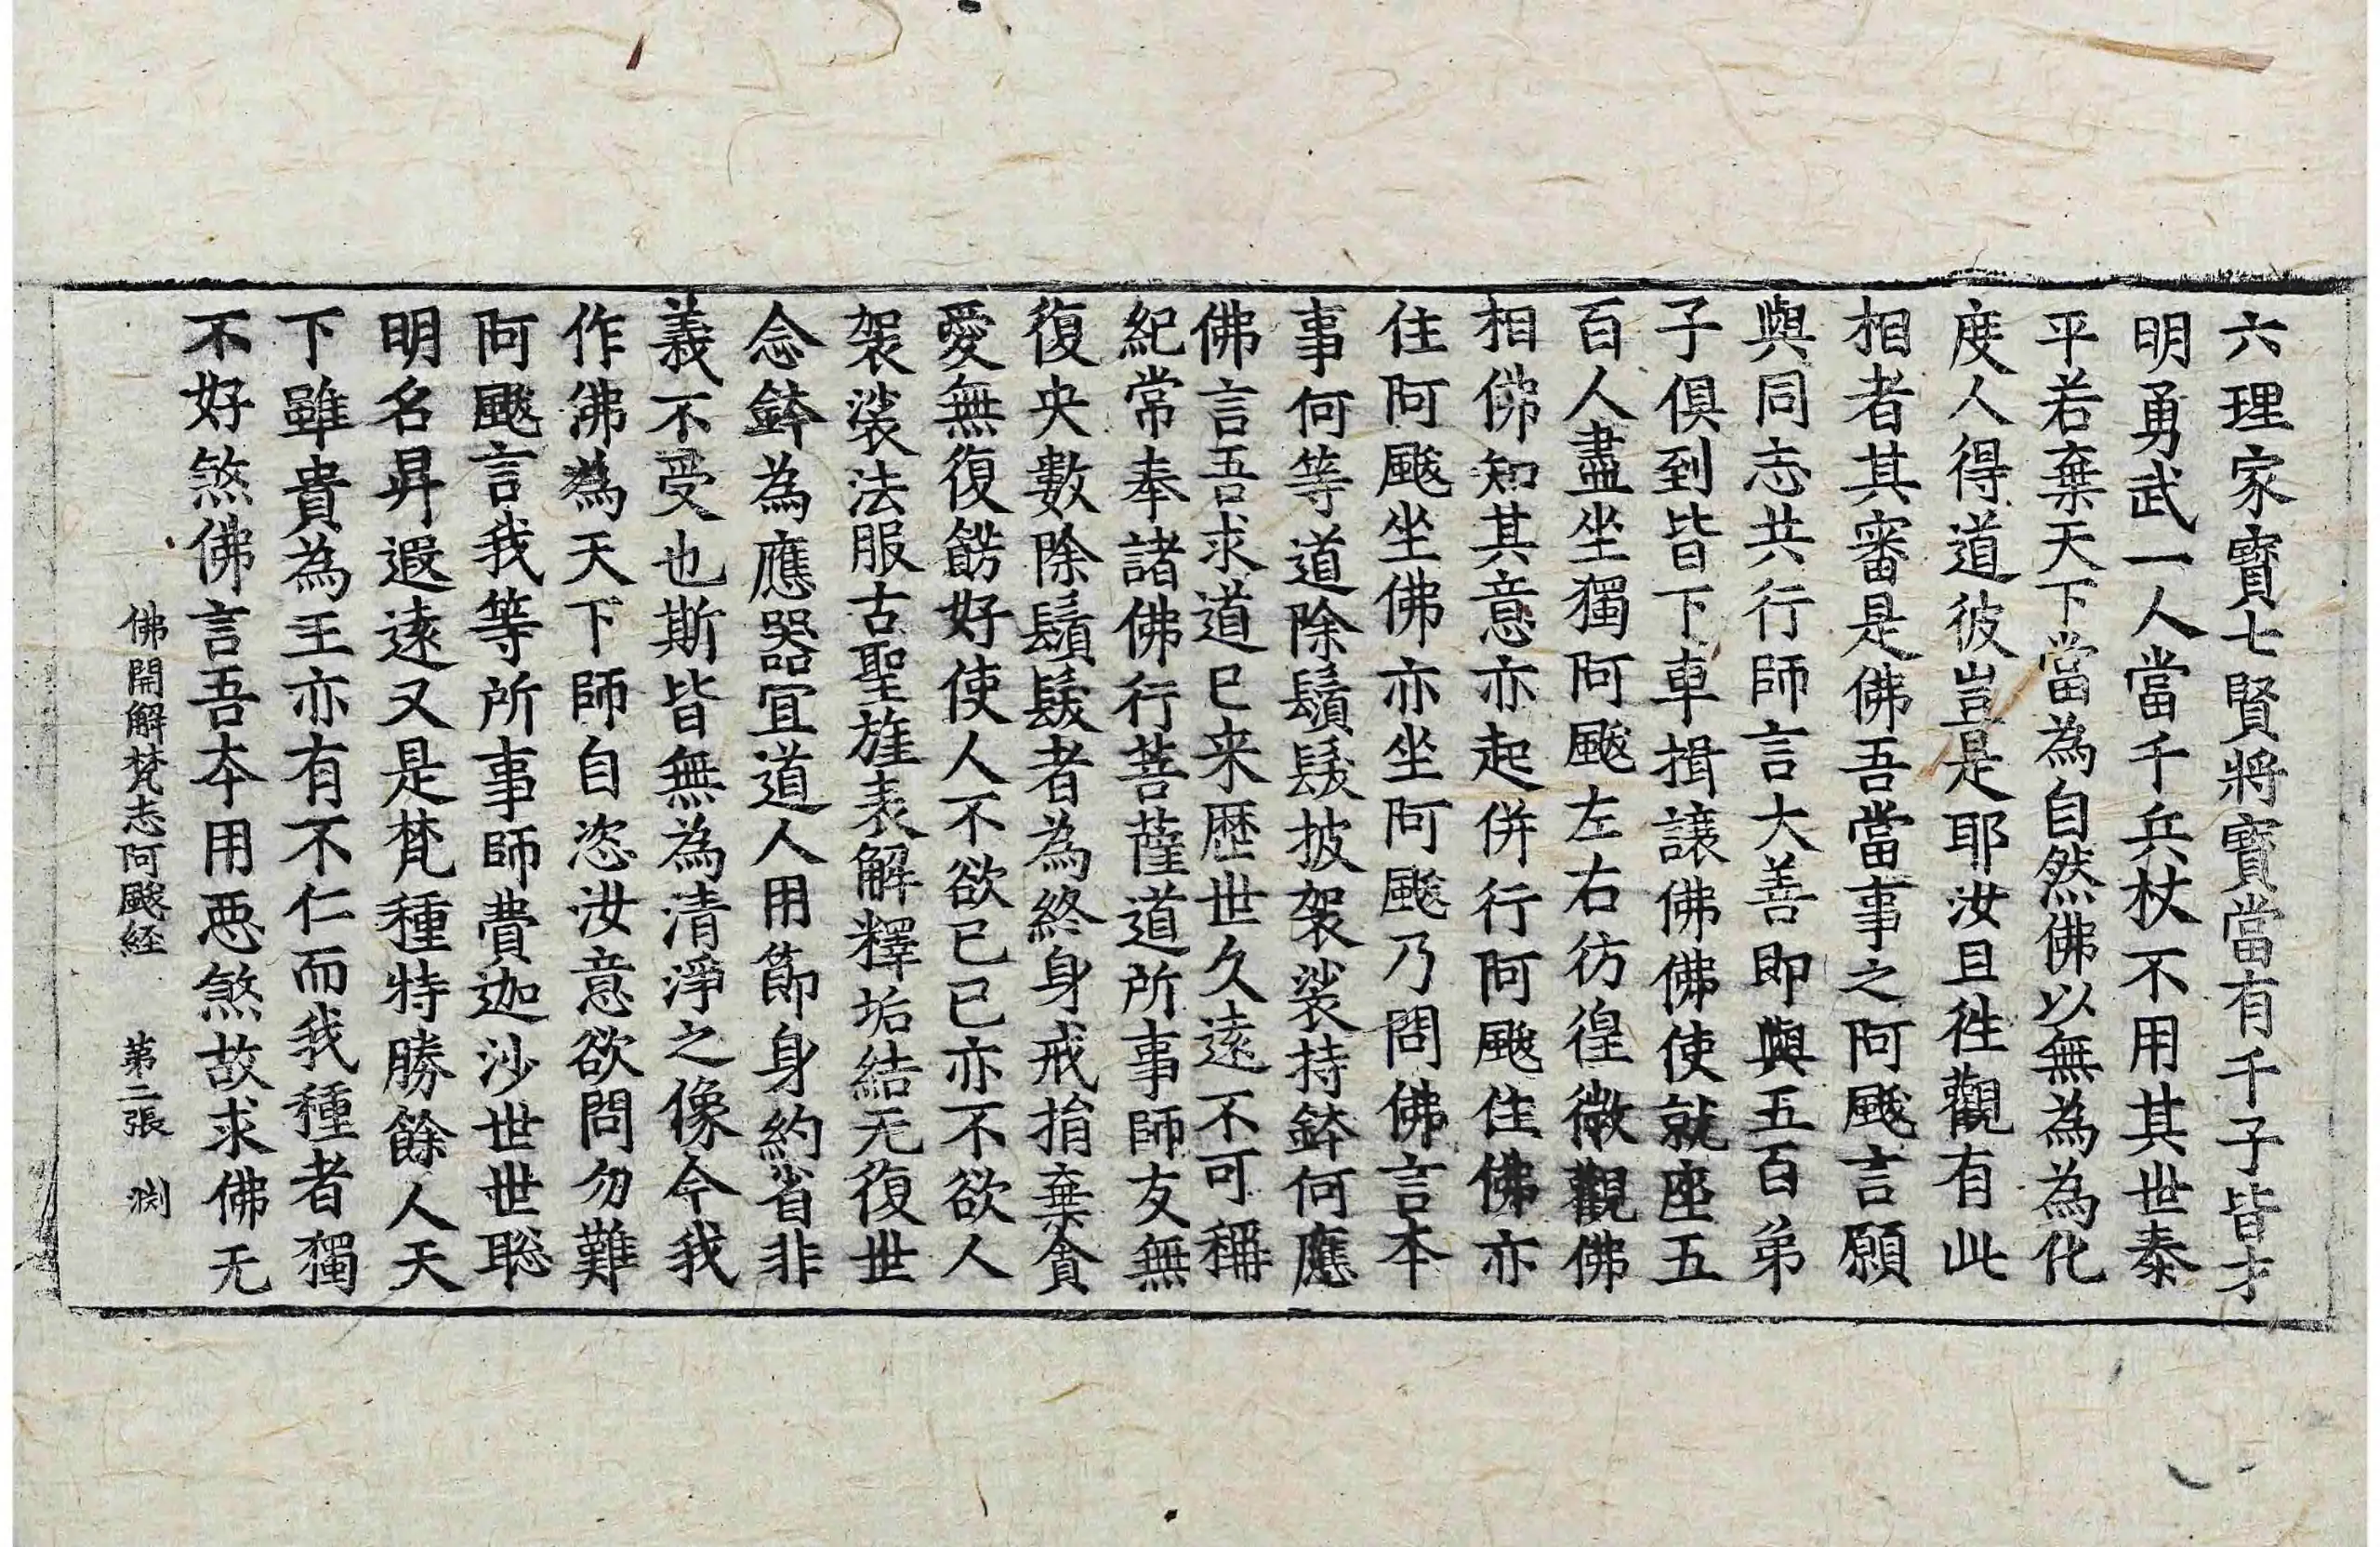 六理家寶七賢將寶當有千子皆才
明勇武一人當千兵杖不用其世泰
平若棄天下當為自然佛以無為為化
度人得道彼豈是耶汝且徃觀有此
相者其審是佛吾當事之阿颰言願
與同志共行師言大善即與五百弟
子俱到皆下車揖讓佛佛使就座五
百人盡坐獨阿颰左右彷徨微觀佛
相佛知其意亦起併行阿颰住佛亦
住阿颰坐佛亦坐阿颰乃問佛言本
事何等道除鬚髮披袈裟持鉢何應
佛言吾求道已来歷世久遠不可稱
紀常奉諸佛行菩薩道所事師友無
復央數除鬚髮者為終身戒捐棄貪
愛無復餝好使人不欲已已亦不欲人
袈裟法服古聖旌表解釋垢結无復世
念鉢為應器宜道人用節身約省非
義不受也斯皆無為清淨之像今我
作佛為天下師自恣汝意欲問勿難
阿颰言我等所事師費迦沙世世聡
明名昇遐遠又是梵種特勝餘人天
下雖貴為王亦有不仁而我種者獨
不好煞佛言吾本用惡煞故求佛无
佛開解梵志阿颰経　第二張　渕